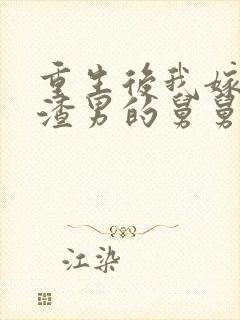 重生後我嫁
渣男的舅舅
江染